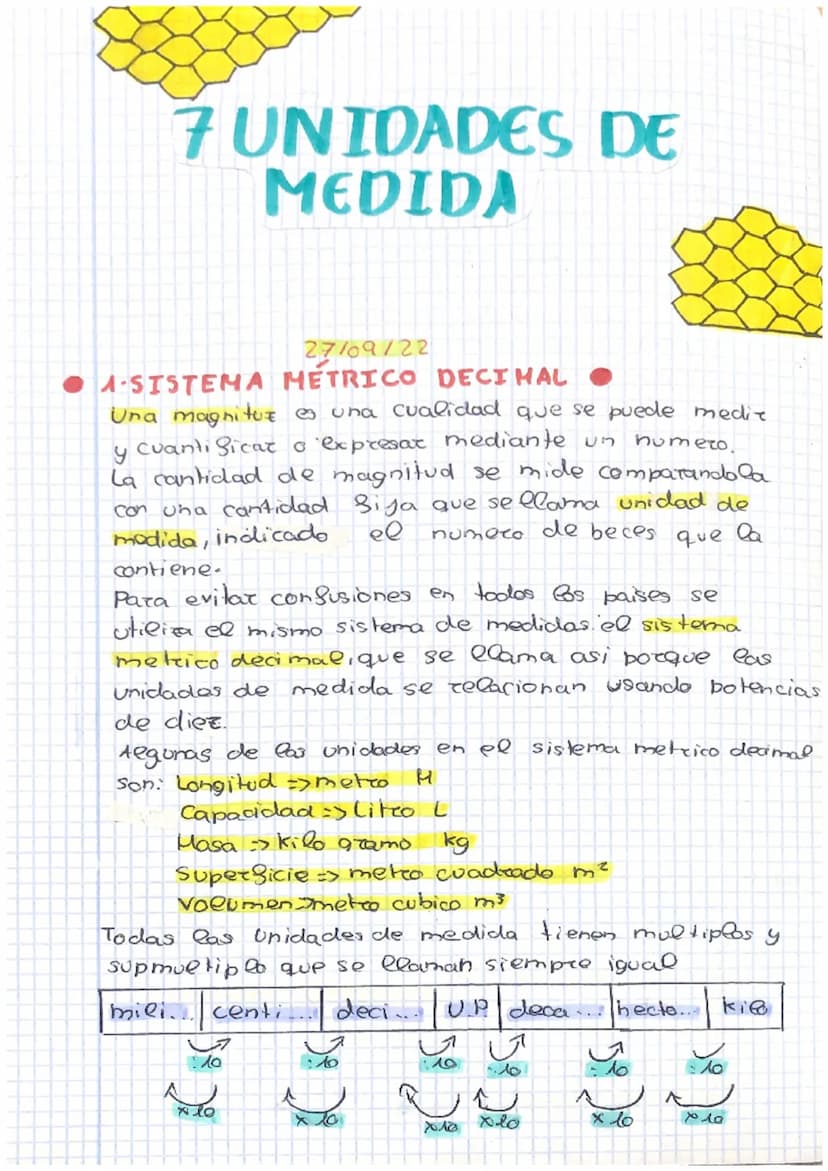 7 UNIDADES DE
MEDIDA
27/09/22
1·SISTEMA MÉTRICO DECIMAL
Una magnituz es una cualidad que se puede medir
y cuantificar o expresar mediante un numero.
La cantidad de magnitud se mide comparandola
con una cantidad fija que se llama unidad de
medida, indicado el numero de beces que la
contiene.
Para evitar confusiones en todos los paises se
utiliza el mismo sistema de medidas. el sistema
metrico decimal, que se llama asi porque las
unidades de medida se relacionan usando potencias
de diez.
Algunas de las unidades en el sistema metrico decimal
son: Longitud => metro M
Capacidad => Litro L
Masa => kilo gramo kg
Superficie => metro cuadrado m²
Volumen => metro cubico m³
Todas las Unidades de medida tienen multiplos y
supmultiplo que se llaman siempre igual
mili... centi... deci... U.P deca... hecto... kilo
:10 :10 :10 :10 :10 :10
x10 x10 x10 x10 x10 x10